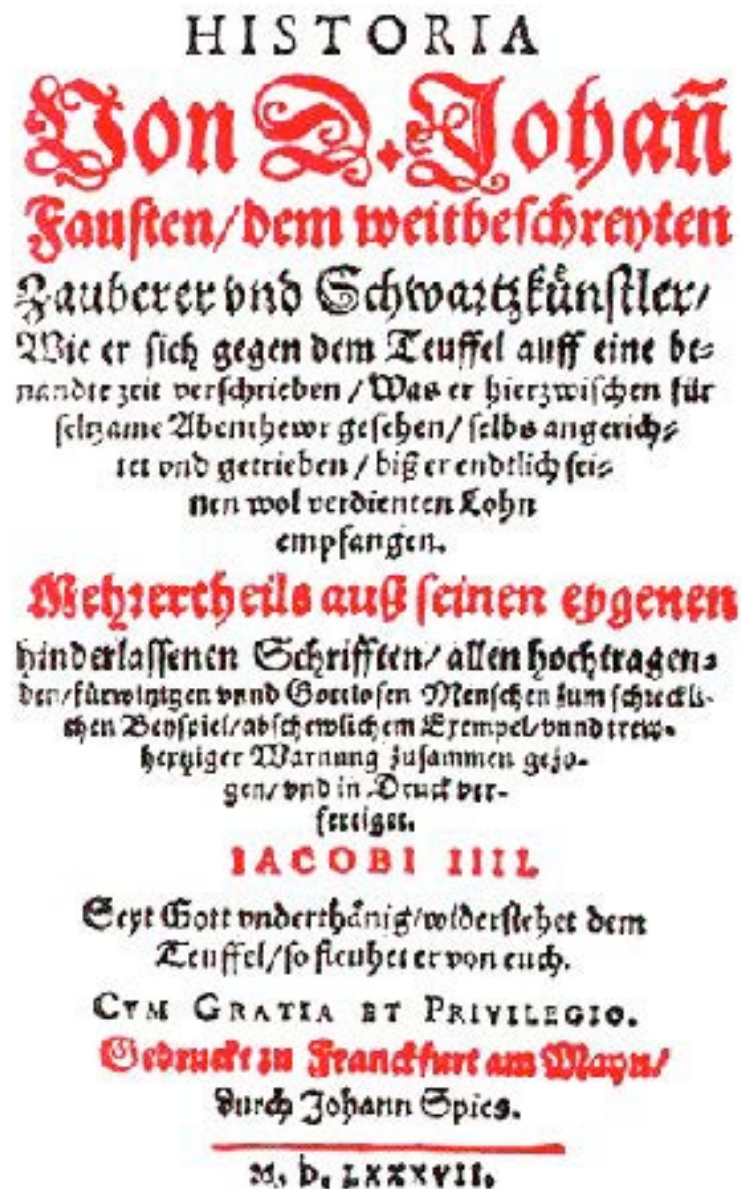 HISTORIA
Von D. Johañ
Fausten/dem weitbeschreyten
Zauberer vnd Schwartzkünstler/
Wie er sich gegen dem Teuffel auff eine be⸗
nandte zeit verschrieben / Was er hierzwischen für
seltzame Abenthewr gesehen / selbs angerich⸗
tet vnd getrieben / biß er endtlich sei⸗
nen wol verdienten Lohn
empfangen.
Mehrertheils auß seinen eygenen
hinderlassenen Schrifften/ allen hochtragen⸗
den/fürwitzigen vnnd Gottlosen Menschen zum schreckli-
chen Beyspiel/abschewlichem Exempel/vnnd trew⸗
hertziger Warnung zusammen gezo-
gen/ vnd in Druck ver-
fertiget.
IACOBI IIII.
Seyt Gott vnderthånig/widerstehet dem
Teuffel/so fleuhet er von euch.
CVM GRATIA ET PRIVILEGIO.
Gedruckt zu Franckfurt am Mayn/
durch Johann Spies.
M. D. LXXXVII.